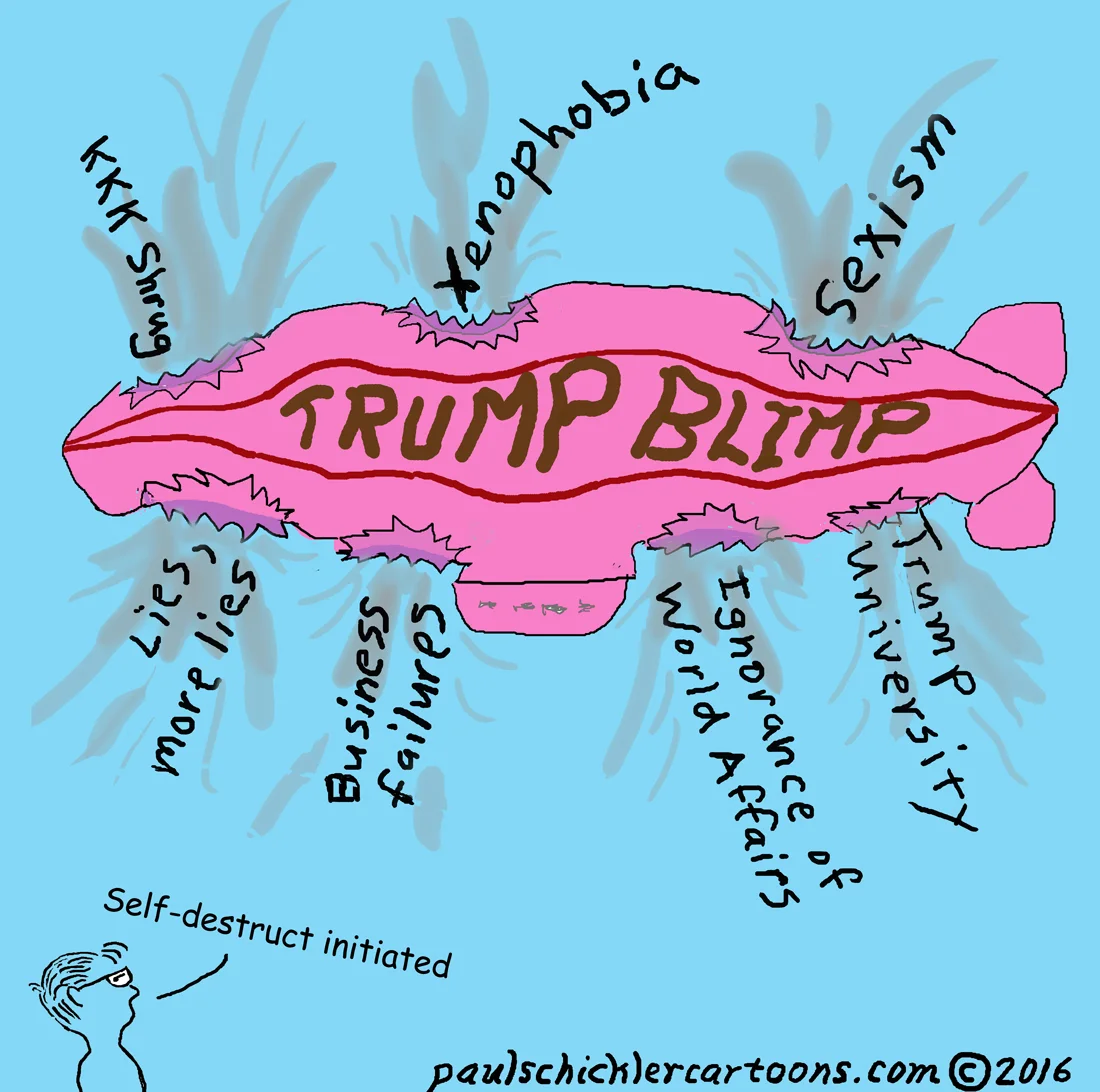 KKK Shrug
Xenophobia
Sexism
TRUMP BLIMP
Lies,
more lies
Business
failures
Ignorance of
World Affairs
Trump
University
Self-destruct initiated
paulschicklercartoons.com © 2016